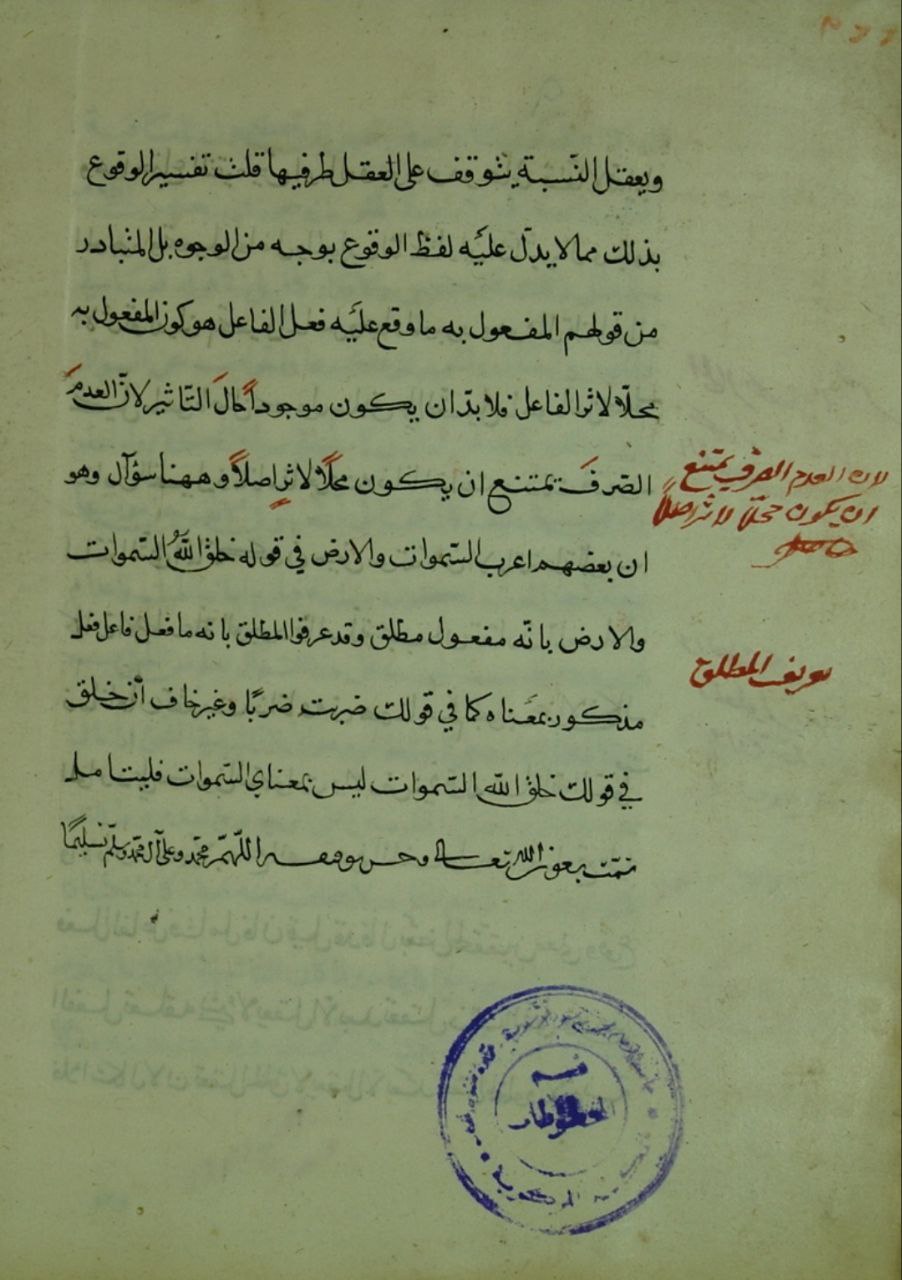 ويعقل النّسبة يتوقف على العقل طرفيها قلت تفسير الوقوع
بذلك مما لا يدلّ عليه لفظ الوقوع بوجه من الوجوه بل المتبادر
من قولهم المفعول به ما وقع عليه فعل الفاعل هو كون المفعول به
محلّا لاثر الفاعل فلا بدّ ان يكون موجوداً حال التّاثير لانّ العدم
الصّرف يمتنع ان يكون محلّاً لاثرٍ اصلاً وههنا سؤال وهو
ان بعضهم اعرب السّموات والارض في قوله خلق اللهُ السّموات
والارض بانّه مفعول مطلق وقد عرفوا المطلق بانه ما فعل فاعل فعل
مذكور بمعناه كما في قولك ضربت ضربًا وغير خاف أن خلق
في قولك خلق الله السّموات ليس بمعناي السّموات فليتامل
تمّت بعون الله تعالى وحسن توفيقه اللّهمّ محمّد وعلى آل محمّد وسلّم تسليمًا
لان العدم الصرف يمتنع
ان يكون محلّا لاثر اصلاً
تعريف المطلق
قسم
المخطوطات